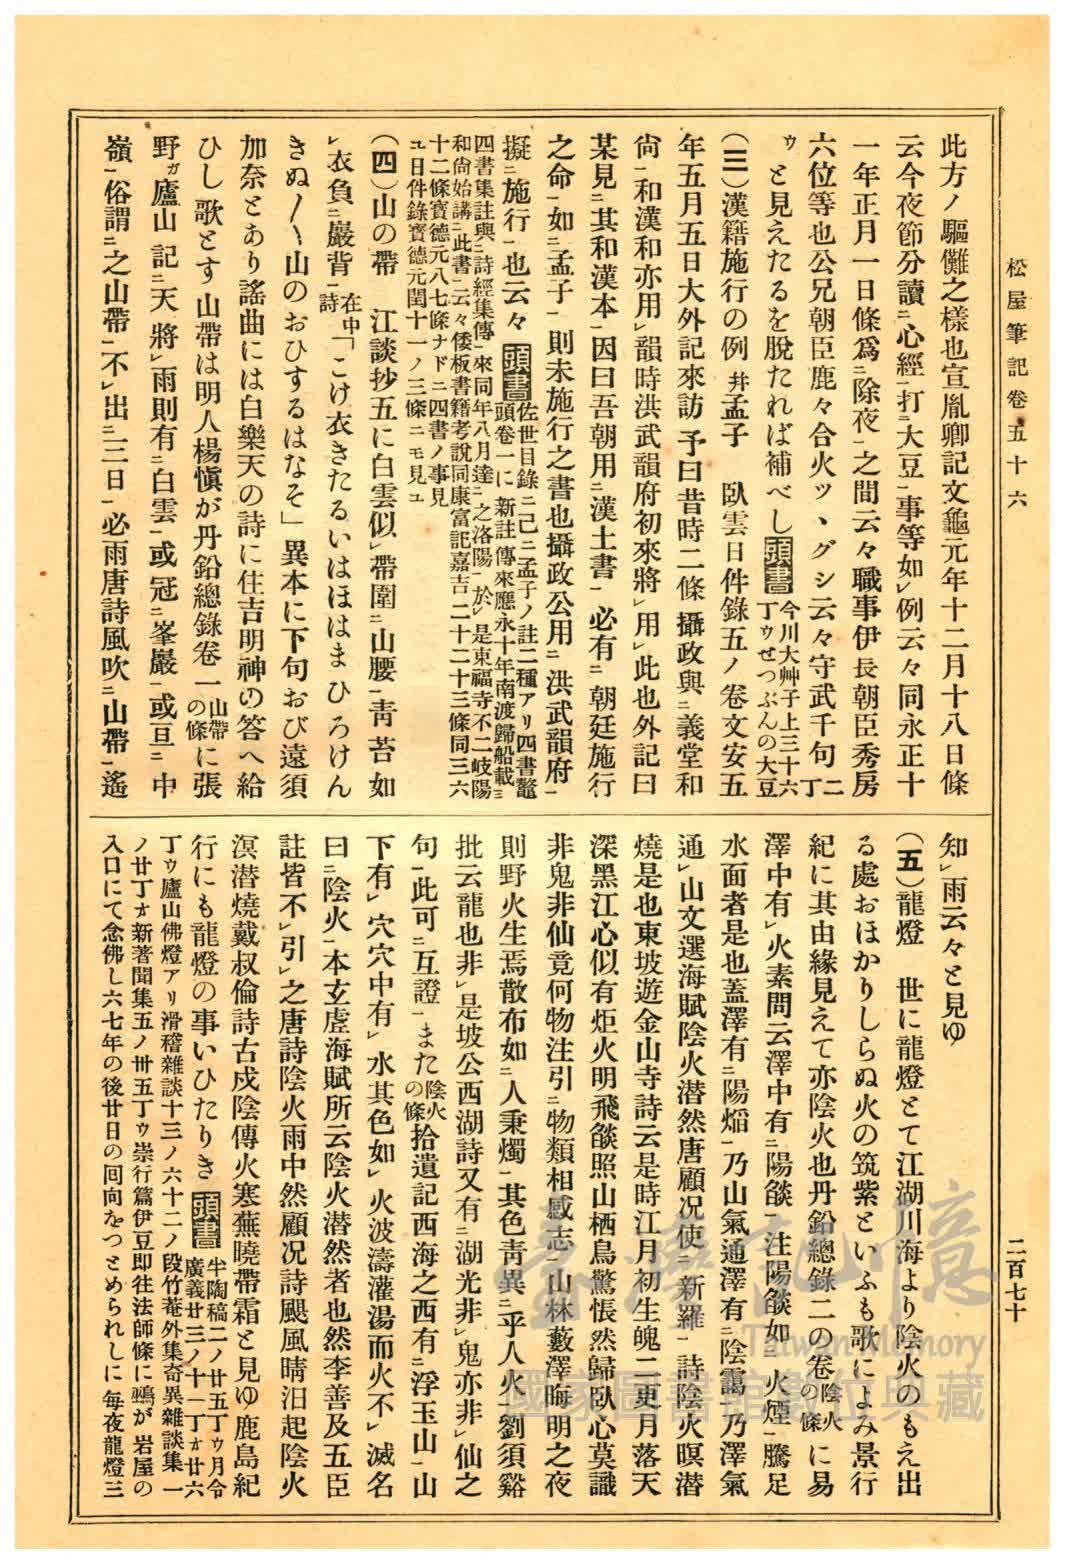 松屋筆記卷五十六
二百七十
此方ノ驅儺之樣也宣胤卿記文龜元年十二月十八日條
云今夜節分讀ニ心經一打ニ大豆一事等如レ例云々同永正十
一年正月一日條爲ニ除夜一之間云々職事伊長朝臣秀房
六位等也公兄朝臣鹿々合火ツヽグシ云々守武千句二丁
ウと見えたるを脱たれば補べし頭書今川大艸子上三十六
丁ウせつぶんの大豆
(三)漢籍施行の例幷孟子 臥雲日件錄五ノ卷文安五
年五月五日大外記來訪予曰昔時二條攝政與ニ義堂和
尙一和漢和亦用レ韻時洪武韻府初來將レ用レ此也外記曰
某見ニ其和漢本一因曰吾朝用ニ漢土書一必有ニ朝廷施行
之命一如ニ孟子一則未施行之書也攝政公用ニ洪武韻府一
擬ニ施行一也云々頭書佐世目錄ニ己ニ孟子ノ註二種アリ四書鼇
頭卷一に新註傳來應永十年南渡歸船載ニ
四書集註與ニ詩經集傳一來同年八月達ニ之洛陽一於レ是東福寺不二岐陽
和尙始講ニ此書一云々倭板書籍考說同康富記嘉吉二十二十三條同三六
十二條寶德元八七條ナドニ四書ノ事見
ユ日件錄寶德元閏十一ノ三條ニモ見ユ
(四)山の帶 江談抄五に白雲似レ帶圍ニ山腰一靑苔如
レ衣負ニ巖背一在中詩「こけ衣きたるいはほはまひろけん
きぬ〳〵山のおひするはなそ」異本に下句おび遠須
加奈とあり謠曲には白樂天の詩に住吉明神の答へ給
ひし歌とす山帶は明人楊愼が丹鉛總錄卷一山帶の條に張
野ガ廬山記ニ天將レ雨則有ニ白雲一或冠ニ峯巖一或亘ニ中
嶺一俗謂ニ之山帶一不レ出ニ三日一必雨唐詩風吹ニ山帶一遙
知レ雨云々と見ゆ
(五)龍燈 世に龍燈とて江湖川海より陰火のもえ出
る處おほかりしらぬ火の筑紫といふも歌によみ景行
紀に其由緣見えて亦陰火也丹鉛總錄二の卷陰火の條に易
澤中有レ火素問云澤中有ニ陽燄一注陽燄如ニ火煙一騰足
水面者是也蓋澤有ニ陽焰一乃山氣通澤有ニ陰靄一乃澤氣
通レ山文選海賦陰火潛然唐顧況使ニ新羅一詩陰火暝潛
燒是也東坡遊金山寺詩云是時江月初生魄二更月落天
深黑江心似有炬火明飛燄照山栖鳥驚悵然歸臥心莫識
非鬼非仙竟何物注引ニ物類相感志一山林藪澤晦明之夜
則野火生焉散布如ニ人秉燭一其色靑異ニ乎人火一劉須谿
批云龍也非レ是坡公西湖詩又有ニ湖光非レ鬼亦非レ仙之
句一此可ニ互證一また陰火の條拾遺記西海之西有ニ浮玉山一山
下有レ穴穴中有レ水其色如レ火波濤灌湯而火不レ滅名
曰ニ陰火一本玄虛海賦所云陰火潛然者也然李善及五臣
註皆不レ引レ之唐詩陰火雨中然顧况詩颶風晴汨起陰火
溟潛燒戴叔倫詩古戍陰傳火寒蕪曉帶霜と見ゆ鹿島紀
行にも龍燈の事いひたりき頭書半陶稿二ノ廿五丁ウ月令
廣義廿三ノ十一丁オ廿六
丁ウ廬山佛燈アリ滑稽雜談十三ノ六十二ノ段竹菴外集奇異雜談集一
ノ廿丁オ新著聞集五ノ卅五丁ウ崇行篇伊豆卽往法師條に鵐が岩屋の
入口にて念佛し六七年の後廿日の囘向をつとめられしに每夜龍燈三
臺灣記憶
Taiwan Memory
國家圖書館數位典藏